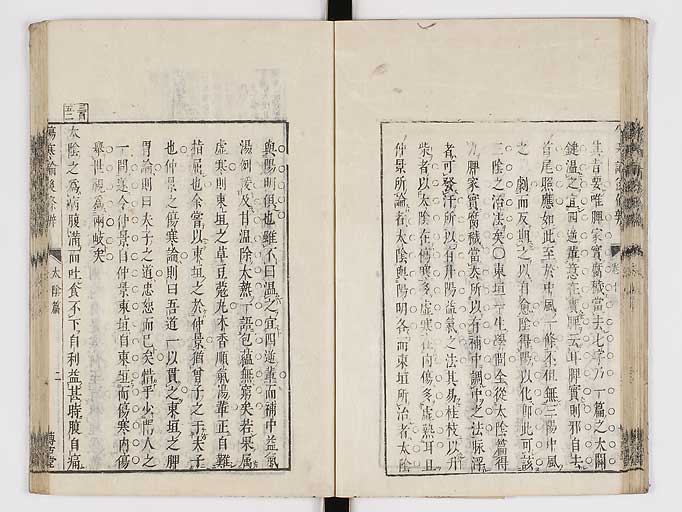 其吉要唯脾家實腐穢當去七字乃一篇之大關
鍵溫之宜四逆輩意在實脾云耳脾實則邪自去
首尾照應如此至於中風一條不但無三陽中風
之劇而反期之以自愈陰得陽以化卽此可該
三陰之治法矣○東垣一生學問全從太陰篇得
力脾家實腐穢當去所以有補中調中之法脉浮
者可發汗所以有升陽益氣之法其易桂枝以升
柴者以太陰在傷寒多虛寒在內傷多虛熱耳且
仲景所論者太陰與陽明各而東垣所治者太陰
與陽明俱也雖不曰溫之宜四逆輩而補中益氣
湯例後及甘溫除大熱一語包蘊無窮矣若果屬
虛寒則東垣之草豆蔲丸木香順氣湯輩正自難
指屈也余嘗以東垣之於仲景猶曾子之于夫子
也仲景之傷寒論則曰吾道一以貫之東垣之脾
胃論則曰夫子之道忠恕而已矣惜乎少門人之
一問遂令仲景自仲景東垣自東垣而傷寒內傷
舉世視爲兩岐矣
太陰之爲病腹滿而吐食不下自利益甚時腹自痛
傷寒論後條辨
太陰篇
二
博古堂